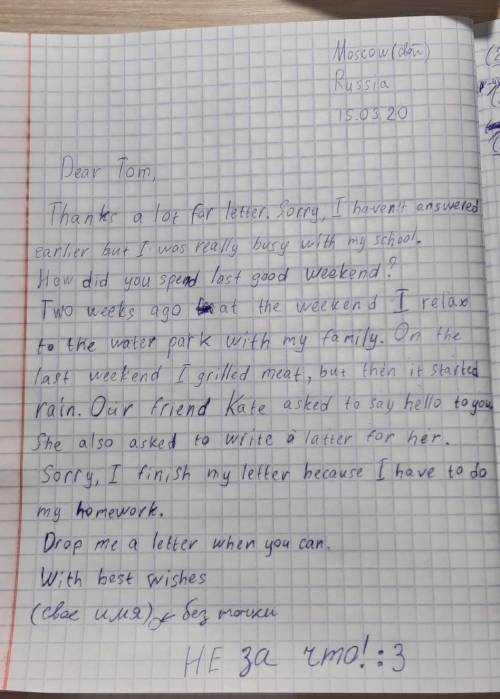 Moscow
Russia
15.03.20
Dear Tom,
Thanks a lot for letter. Sorry, I haven't answered
earlier but I was really busy with my school.
How did you spend last good weekend?
Two weeks ago at the weekend I relax
to the water park with my family. On the
last weekend I grilled meat, but then it started
rain. Our friend Kate asked to say hello to you.
She also asked to write a latter for her.
Sorry, I finish my letter because I have to do
my homework.
Drop me a letter when you can.
With best wishes
(своё имя) без точки
НЕ за что! :3